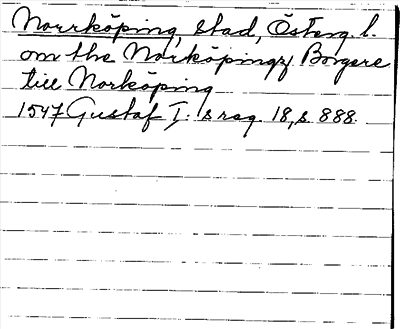 Norrköping, stad, Österg. l.
om the Norköpingz Borgere
till Norköping
1547 Gustaf I:s reg. 18, s 888.